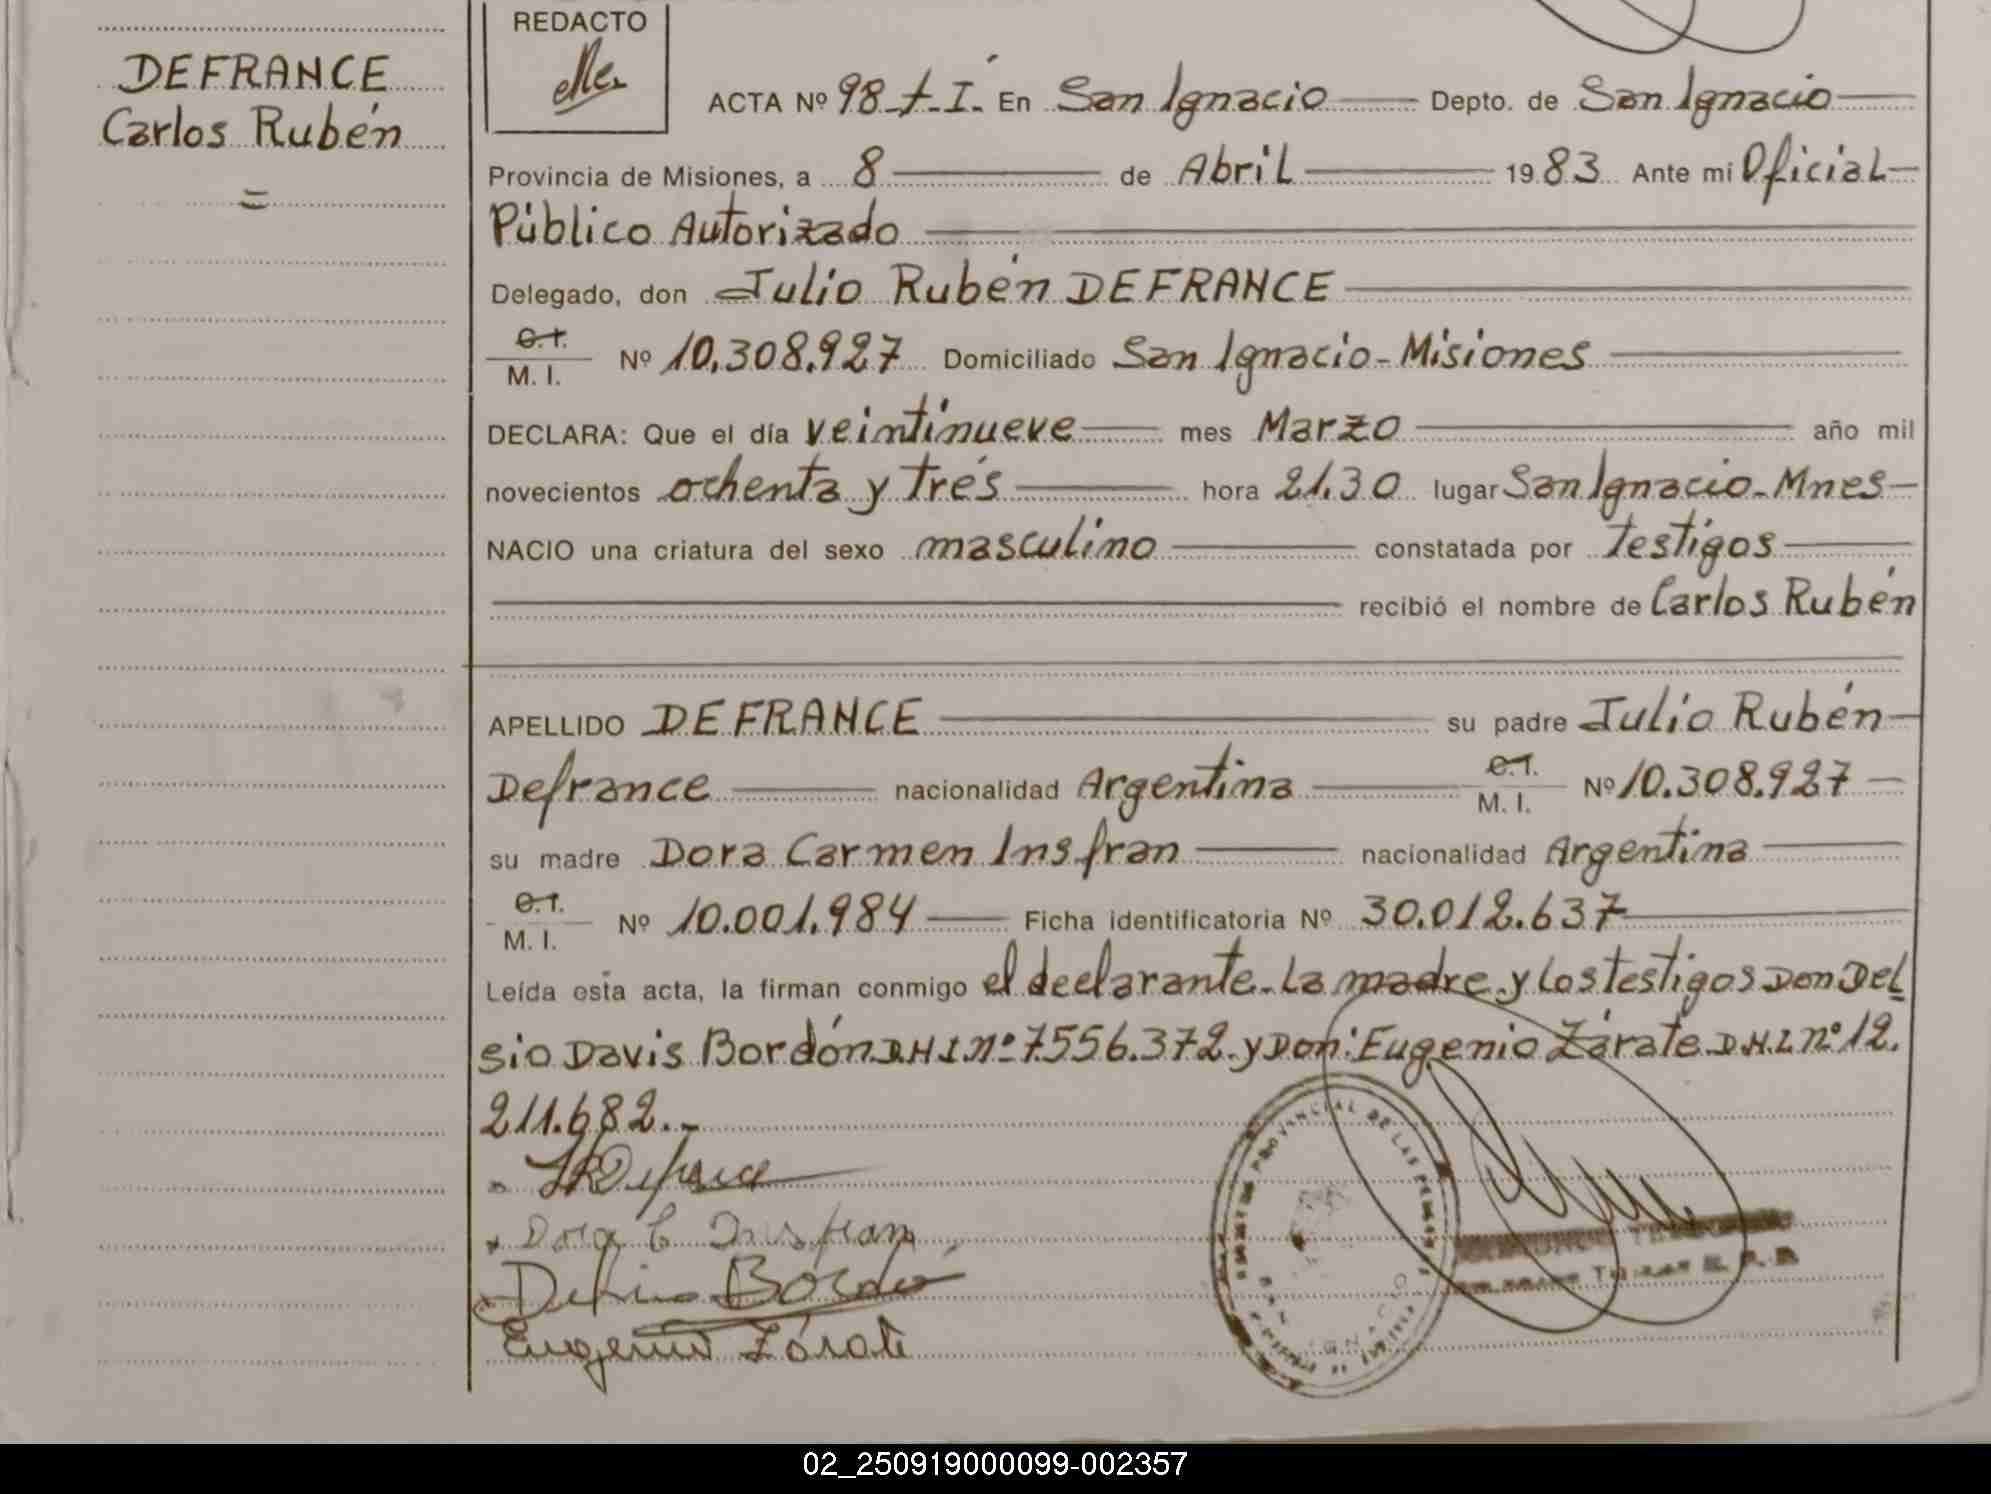 DEFRANCE
Carlos Rubén
=
REDACTO
ACTA Nº 98-t-I. En San Ignacio Depto. de San Ignacio
Provincia de Misiones, a 8 de Abril 1983 Ante mi Oficial
Público Autorizado
Delegado, don Julio Rubén DEFRANCE
C.I. M. I. Nº 10.308.927 Domiciliado San Ignacio - Misiones
DECLARA: Que el día veintinueve mes Marzo año mil
novecientos ochenta y trés hora 21.30 lugar San Ignacio - Mnes
NACIO una criatura del sexo masculino constatada por testigos
recibió el nombre de Carlos Rubén
APELLIDO DEFRANCE su padre Julio Rubén
Defrance nacionalidad Argentina C.I. M. I. Nº 10.308.927
su madre Dora Carmen Insfran nacionalidad Argentina
C.I. M. I. Nº 10.001.984 Ficha identificatoria Nº 30.012.637
Leída esta acta, la firman conmigo el declarante. La madre y los testigos Don Del
sio Davis Bordón D.N.I. nº 7556.372. y Don: Eugenio Zárate D.N.I. nº 12.
211.682.-
Dora C Insfran
Eugenio Zárate
PROVINCIAL DE LAS
IGNACIO
02_250919000099-002357